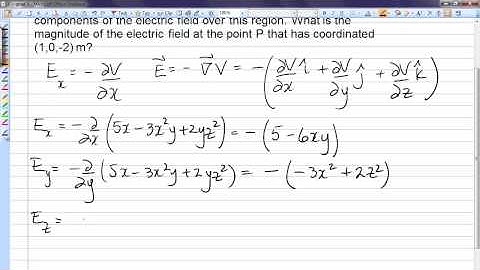 components of the electric field over this region. What is the
magnitude of the electric field at the point P that has coordinated
(1,0,-2) m?
E_x = - ∂V/∂x    E⃗ = - ∇⃗V = -(∂V/∂x î + ∂V/∂y ĵ + ∂V/∂z k̂)
E_x = - ∂/∂x (5x - 3x²y + 2yz²) = - (5 - 6xy)
E_y = - ∂/∂y (5x - 3x²y + 2yz²) = - (-3x² + 2z²)
E_z =